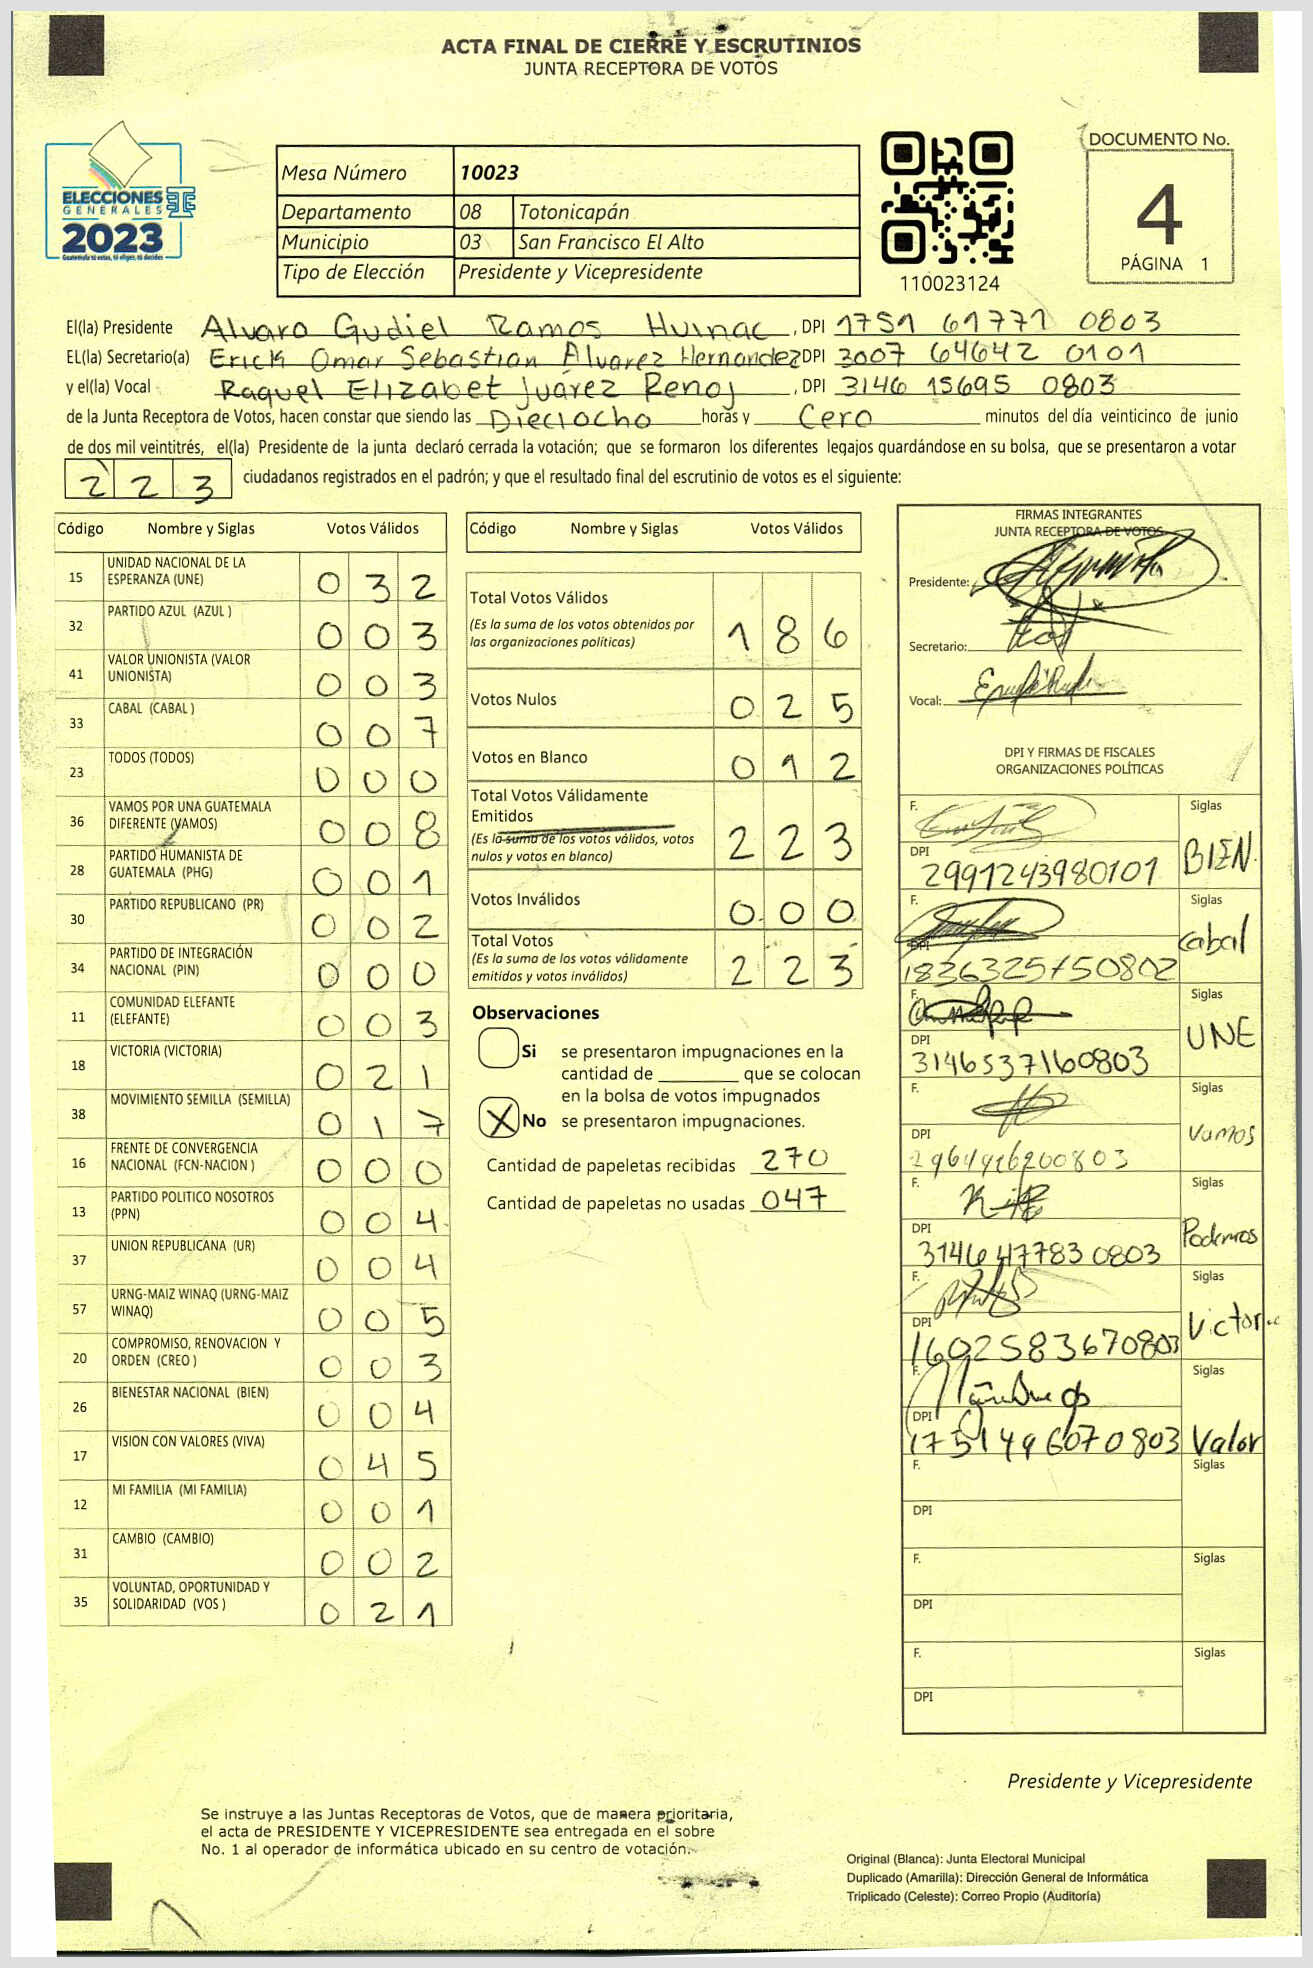 ACTA FINAL DE CIERRE Y ESCRUTINIOS
JUNTA RECEPTORA DE VOTOS
ELECCIONES
GENERALES
2023
Guatemala tú votas, tú eliges, tú decides
Mesa Número 10023
Departamento 08 Totonicapán
Municipio 03 San Francisco El Alto
Tipo de Elección Presidente y Vicepresidente
110023124
DOCUMENTO No.
4
PÁGINA 1
El(la) Presidente Alvaro Gudiel Ramos Huinac, DPI 1751 61771 0803
EL(la) Secretario(a) Erick Omar Sebastian Alvarez Hernandez DPI 3007 64642 0101
y el(la) Vocal Raquel Elizabet Juárez Renoj, DPI 3146 15695 0803
de la Junta Receptora de Votos, hacen constar que siendo las Dieciocho horas y Cero minutos del día veinticinco de junio
de dos mil veintitrés, el(la) Presidente de la junta declaró cerrada la votación; que se formaron los diferentes legajos guardándose en su bolsa, que se presentaron a votar
223 ciudadanos registrados en el padrón; y que el resultado final del escrutinio de votos es el siguiente:
Código Nombre y Siglas Votos Válidos
15 UNIDAD NACIONAL DE LA
ESPERANZA (UNE) 032
32 PARTIDO AZUL (AZUL ) 003
41 VALOR UNIONISTA (VALOR
UNIONISTA) 003
33 CABAL (CABAL ) 007
23 TODOS (TODOS) 000
36 VAMOS POR UNA GUATEMALA
DIFERENTE (VAMOS) 008
28 PARTIDO HUMANISTA DE
GUATEMALA (PHG) 001
30 PARTIDO REPUBLICANO (PR) 002
34 PARTIDO DE INTEGRACIÓN
NACIONAL (PIN) 000
11 COMUNIDAD ELEFANTE
(ELEFANTE) 003
18 VICTORIA (VICTORIA) 021
38 MOVIMIENTO SEMILLA (SEMILLA) 017
16 FRENTE DE CONVERGENCIA
NACIONAL (FCN-NACION ) 000
13 PARTIDO POLITICO NOSOTROS
(PPN) 004
37 UNION REPUBLICANA (UR) 004
57 URNG-MAIZ WINAQ (URNG-MAIZ
WINAQ) 005
20 COMPROMISO, RENOVACION Y
ORDEN (CREO ) 003
26 BIENESTAR NACIONAL (BIEN) 004
17 VISION CON VALORES (VIVA) 045
12 MI FAMILIA (MI FAMILIA) 001
31 CAMBIO (CAMBIO) 002
35 VOLUNTAD, OPORTUNIDAD Y
SOLIDARIDAD (VOS ) 021
Código Nombre y Siglas Votos Válidos
Total Votos Válidos
(Es la suma de los votos obtenidos por
las organizaciones políticas) 186
Votos Nulos 025
Votos en Blanco 012
Total Votos Válidamente
Emitidos
(Es la suma de los votos válidos, votos
nulos y votos en blanco) 223
Votos Inválidos 000
Total Votos
(Es la suma de los votos válidamente
emitidos y votos inválidos) 223
Observaciones
Si se presentaron impugnaciones en la
cantidad de ________ que se colocan
en la bolsa de votos impugnados
X No se presentaron impugnaciones.
Cantidad de papeletas recibidas 270
Cantidad de papeletas no usadas 047
FIRMAS INTEGRANTES
JUNTA RECEPTORA DE VOTOS
Presidente:
Secretario:
Vocal:
DPI Y FIRMAS DE FISCALES
ORGANIZACIONES POLÍTICAS
F. Siglas
DPI 2991243980101 BIEN.
F. Siglas
DPI Cabal
F. Siglas
DPI 3146537160803 UNE
F. Siglas
DPI Vamos
F. Siglas
DPI 3146477830803 Podemos
F. Siglas
DPI 1602583670803 Victoria
F. Siglas
DPI 1751496070803 Valor
F. Siglas
DPI
F. Siglas
DPI
F. Siglas
DPI
Presidente y Vicepresidente
Se instruye a las Juntas Receptoras de Votos, que de manera prioritaria,
el acta de PRESIDENTE Y VICEPRESIDENTE sea entregada en el sobre
No. 1 al operador de informática ubicado en su centro de votación.
Original (Blanca): Junta Electoral Municipal
Duplicado (Amarilla): Dirección General de Informática
Triplicado (Celeste): Correo Propio (Auditoría)